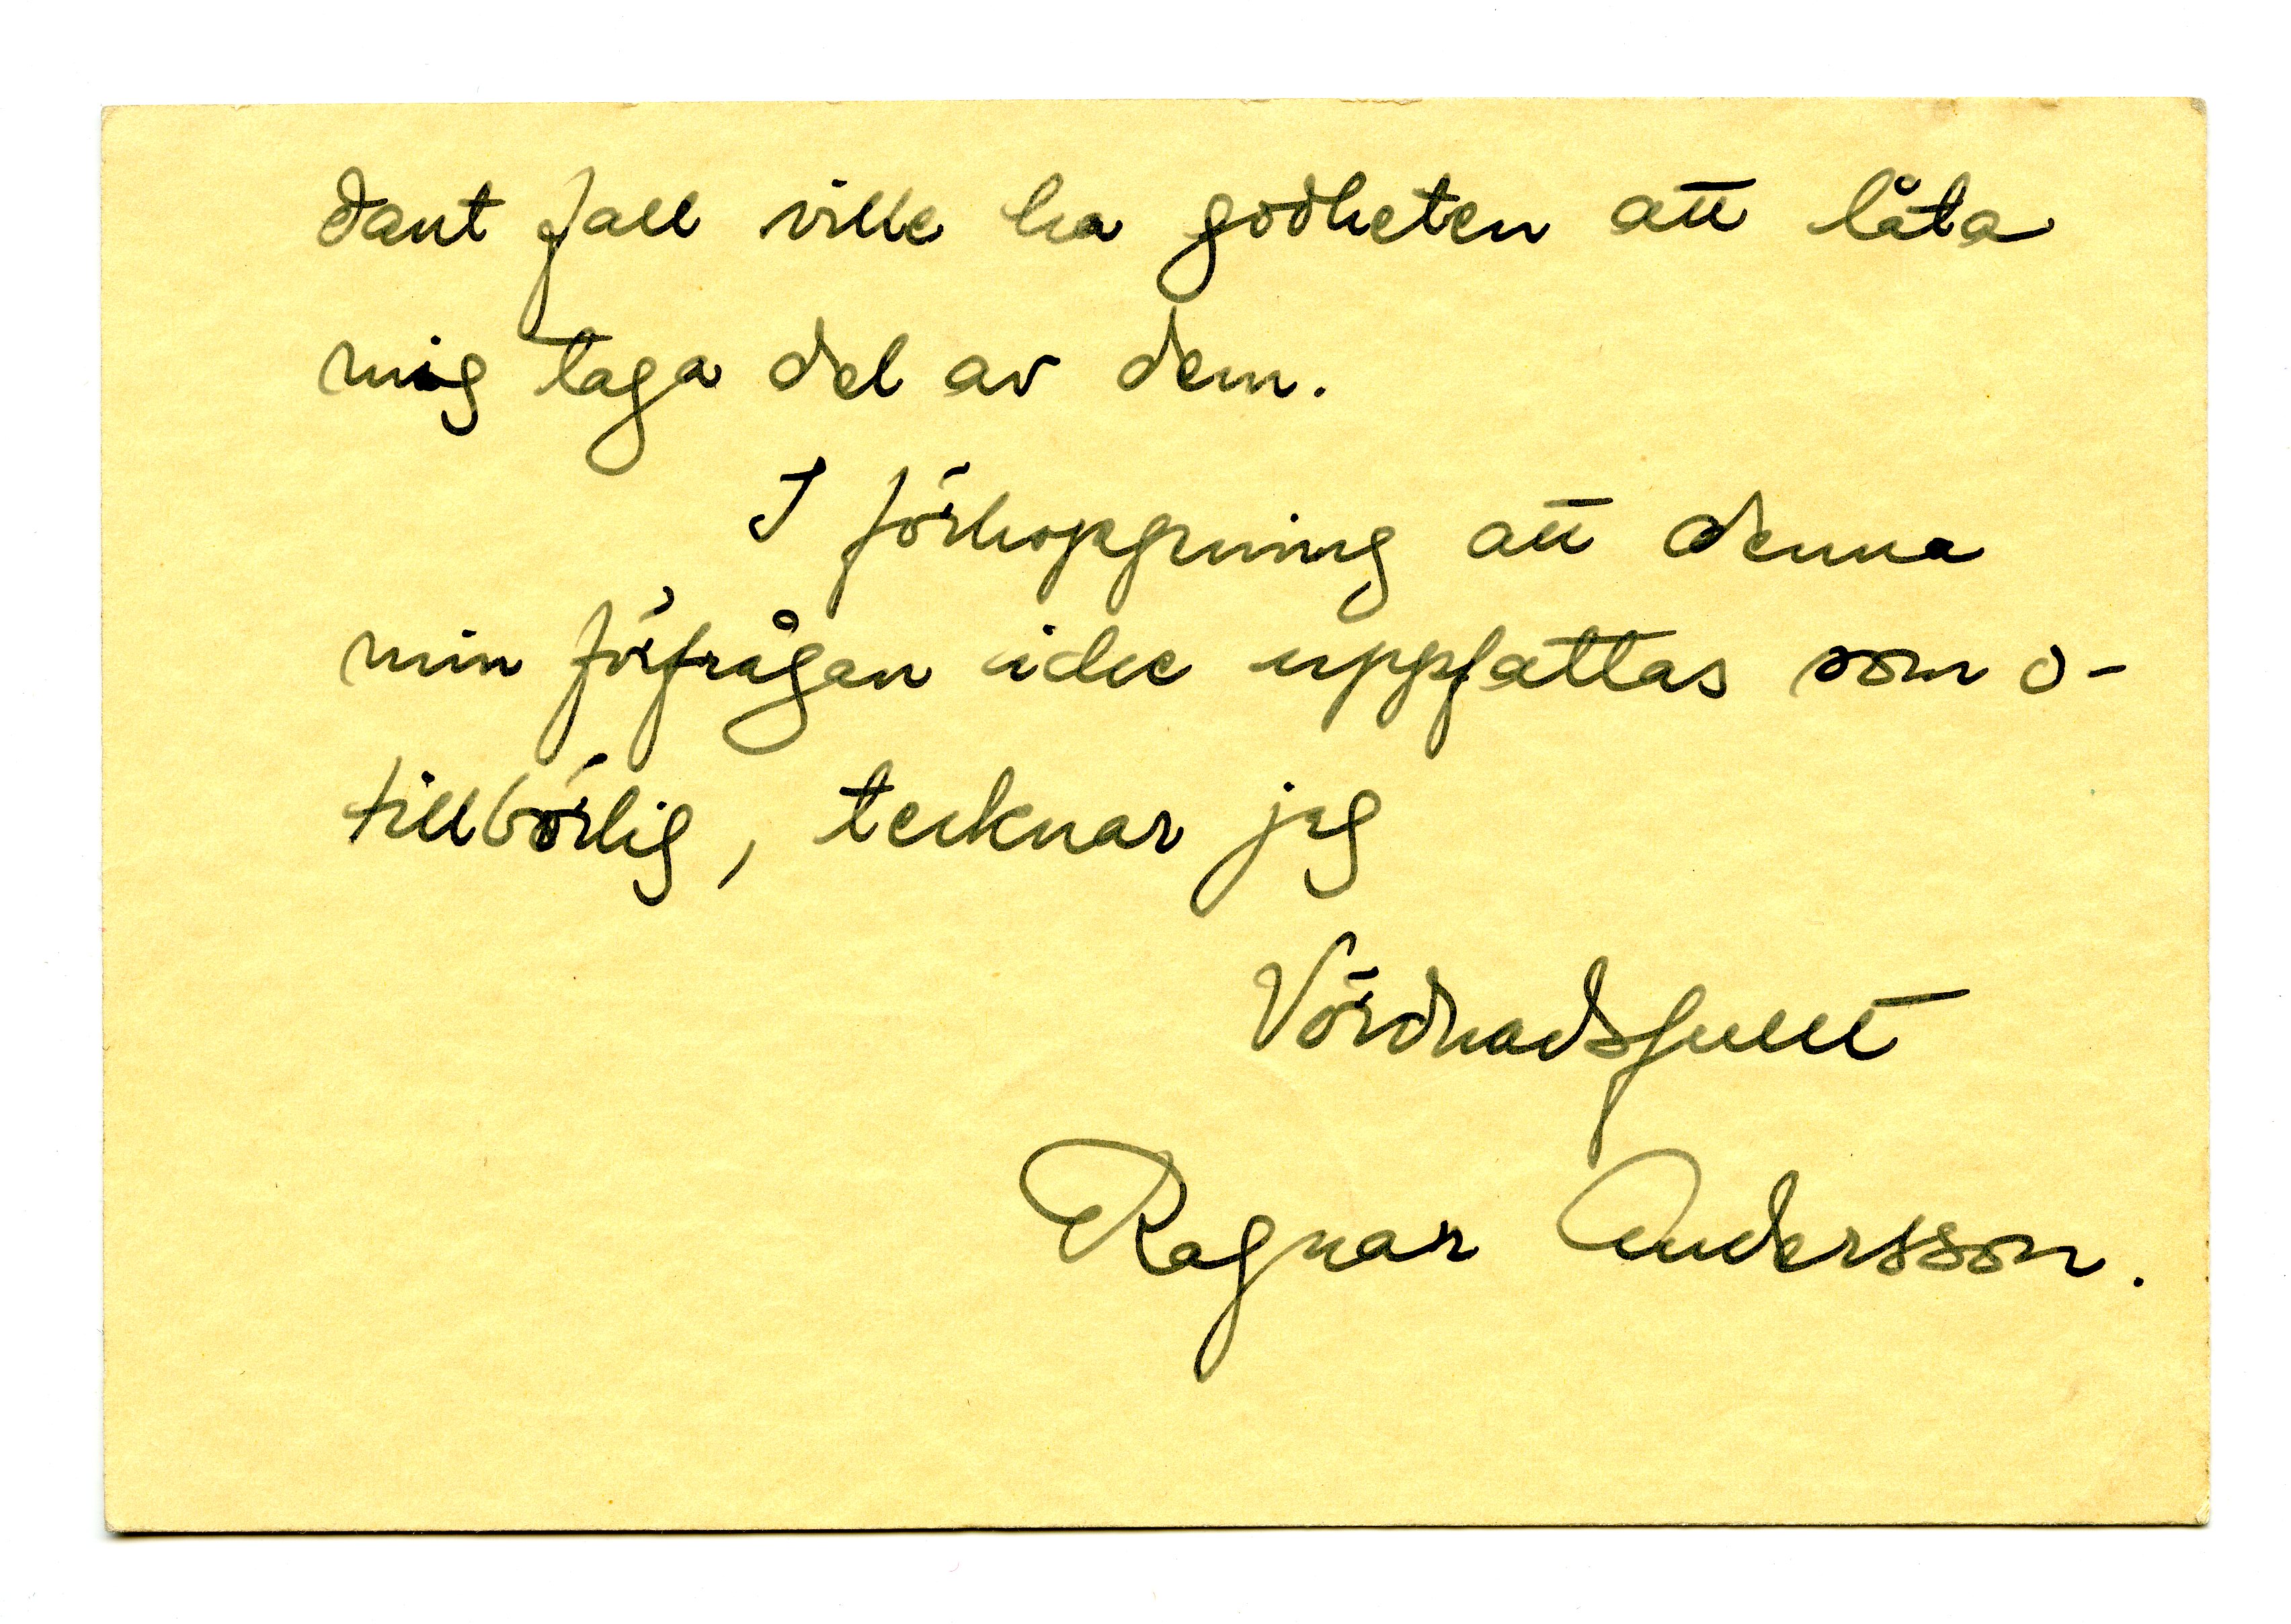 dant fall ville ha godheten att låta
mig taga del av dem.
I förhoppning att denna
min förfrågan icke uppfattas som o-
tillbörlig, tecknar jag
Vördnadsfullt
Ragnar Andersson.